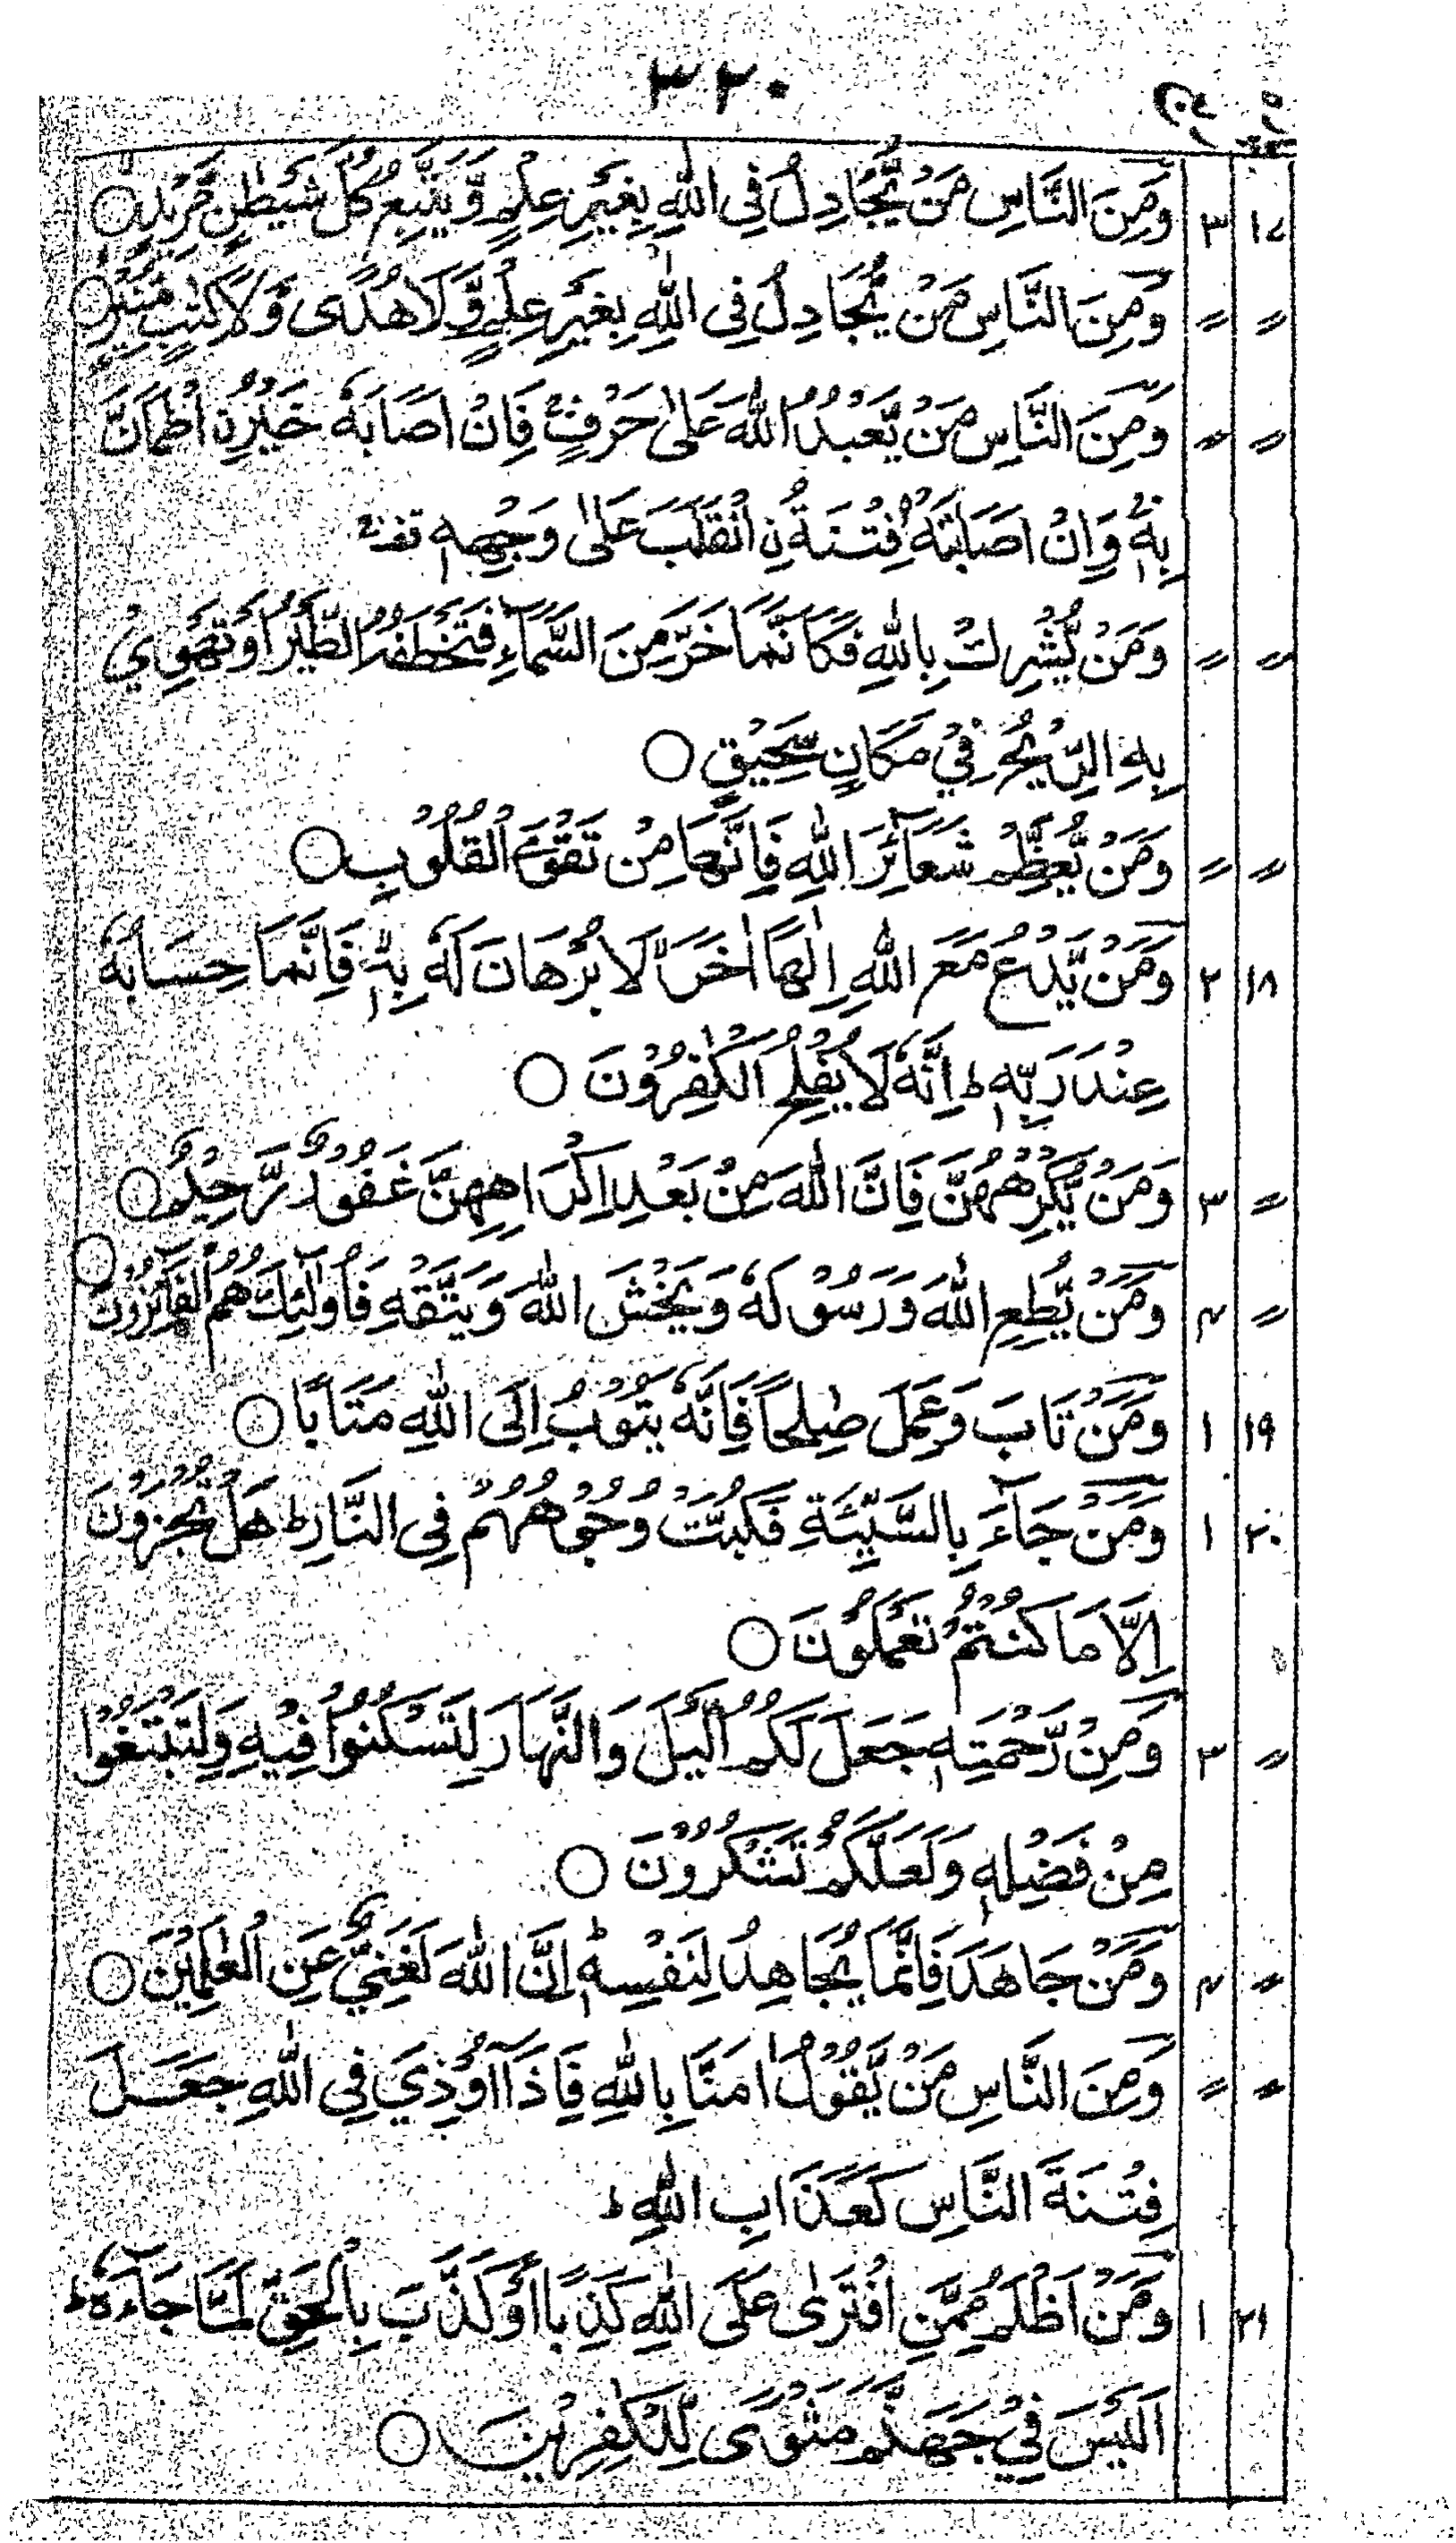 ۳۲۰
۱۷ ۳ وَمِنَ النَّاسِ مَنْ يُّجَادِلُ فِى اللّٰهِ بِغَيْرِ عِلْمٍ وَّيَتَّبِعُ كُلَّ شَيْطٰنٍ مَّرِيْدٍ ○
〃 〃 وَمِنَ النَّاسِ مَنْ يُّجَادِلُ فِى اللّٰهِ بِغَيْرِ عِلْمٍ وَّلَا هُدًى وَّلَا كِتٰبٍ مُّنِيْرٍ ○
〃 〃 وَمِنَ النَّاسِ مَنْ يَّعْبُدُ اللّٰهَ عَلٰى حَرْفٍ ۚ فَاِنْ اَصَابَهٗ خَيْرُ ۨ اطْمَاَنَّ
بِهٖ ۚ وَاِنْ اَصَابَتْهُ فِتْنَةُ ۨ انْقَلَبَ عَلٰى وَجْهِهٖ
〃 〃 وَمَنْ يُّشْرِكْ بِاللّٰهِ فَكَاَنَّمَا خَرَّ مِنَ السَّمَآءِ فَتَخْطَفُهُ الطَّيْرُ اَوْ تَهْوِيْ
بِهِ الرِّيْحُ فِيْ مَكَانٍ سَحِيْقٍ ○
〃 〃 وَمَنْ يُّعَظِّمْ شَعَآئِرَ اللّٰهِ فَاِنَّهَا مِنْ تَقْوَى الْقُلُوْبِ ○
۱۸ ۲ وَمَنْ يَّدْعُ مَعَ اللّٰهِ اِلٰهًا اٰخَرَ ۙ لَا بُرْهَانَ لَهٗ بِهٖ ۙ فَاِنَّمَا حِسَابُهٗ
عِنْدَ رَبِّهٖ ؕ اِنَّهٗ لَا يُفْلِحُ الْكٰفِرُوْنَ ○
〃 ۳ وَمَنْ يُّكْرِهْهُّنَّ فَاِنَّ اللّٰهَ مِنْ بَعْدِ اِكْرَاهِهِنَّ غَفُوْرٌ رَّحِيْمٌ ○
〃 ۴ وَمَنْ يُّطِعِ اللّٰهَ وَرَسُوْلَهٗ وَيَخْشَ اللّٰهَ وَيَتَّقْهِ فَاُولٰٓئِكَ هُمُ الْفَآئِزُوْنَ ○
۱۹ ۱ وَمَنْ تَابَ وَعَمِلَ صٰلِحًا فَاِنَّهٗ يَتُوْبُ اِلَى اللّٰهِ مَتَابًا ○
۲۰ ۱ وَمَنْ جَآءَ بِالسَّيِّئَةِ فَكُبَّتْ وُجُوْهُهُمْ فِى النَّارِ ؕ هَلْ تُجْزَوْنَ
اِلَّا مَا كُنْتُمْ تَعْمَلُوْنَ ○
〃 ۳ وَمِنْ رَّحْمَتِهٖ جَعَلَ لَكُمُ الَّيْلَ وَالنَّهَارَ لِتَسْكُنُوْا فِيْهِ وَلِتَبْتَغُوْا
مِنْ فَضْلِهٖ وَلَعَلَّكُمْ تَشْكُرُوْنَ ○
〃 ۴ وَمَنْ جَاهَدَ فَاِنَّمَا يُجَاهِدُ لِنَفْسِهٖ ؕ اِنَّ اللّٰهَ لَغَنِيٌّ عَنِ الْعٰلَمِيْنَ ○
〃 〃 وَمِنَ النَّاسِ مَنْ يَّقُوْلُ اٰمَنَّا بِاللّٰهِ فَاِذَآ اُوْذِيَ فِى اللّٰهِ جَعَلَ
فِتْنَةَ النَّاسِ كَعَذَابِ اللّٰهِ ؕ
۲۱ ۱ وَمَنْ اَظْلَمُ مِمَّنِ افْتَرٰى عَلَى اللّٰهِ كَذِبًا اَوْ كَذَّبَ بِالْحَقِّ لَمَّا جَآءَهٗ ؕ
اَلَيْسَ فِيْ جَهَنَّمَ مَثْوًى لِّلْكٰفِرِيْنَ ○